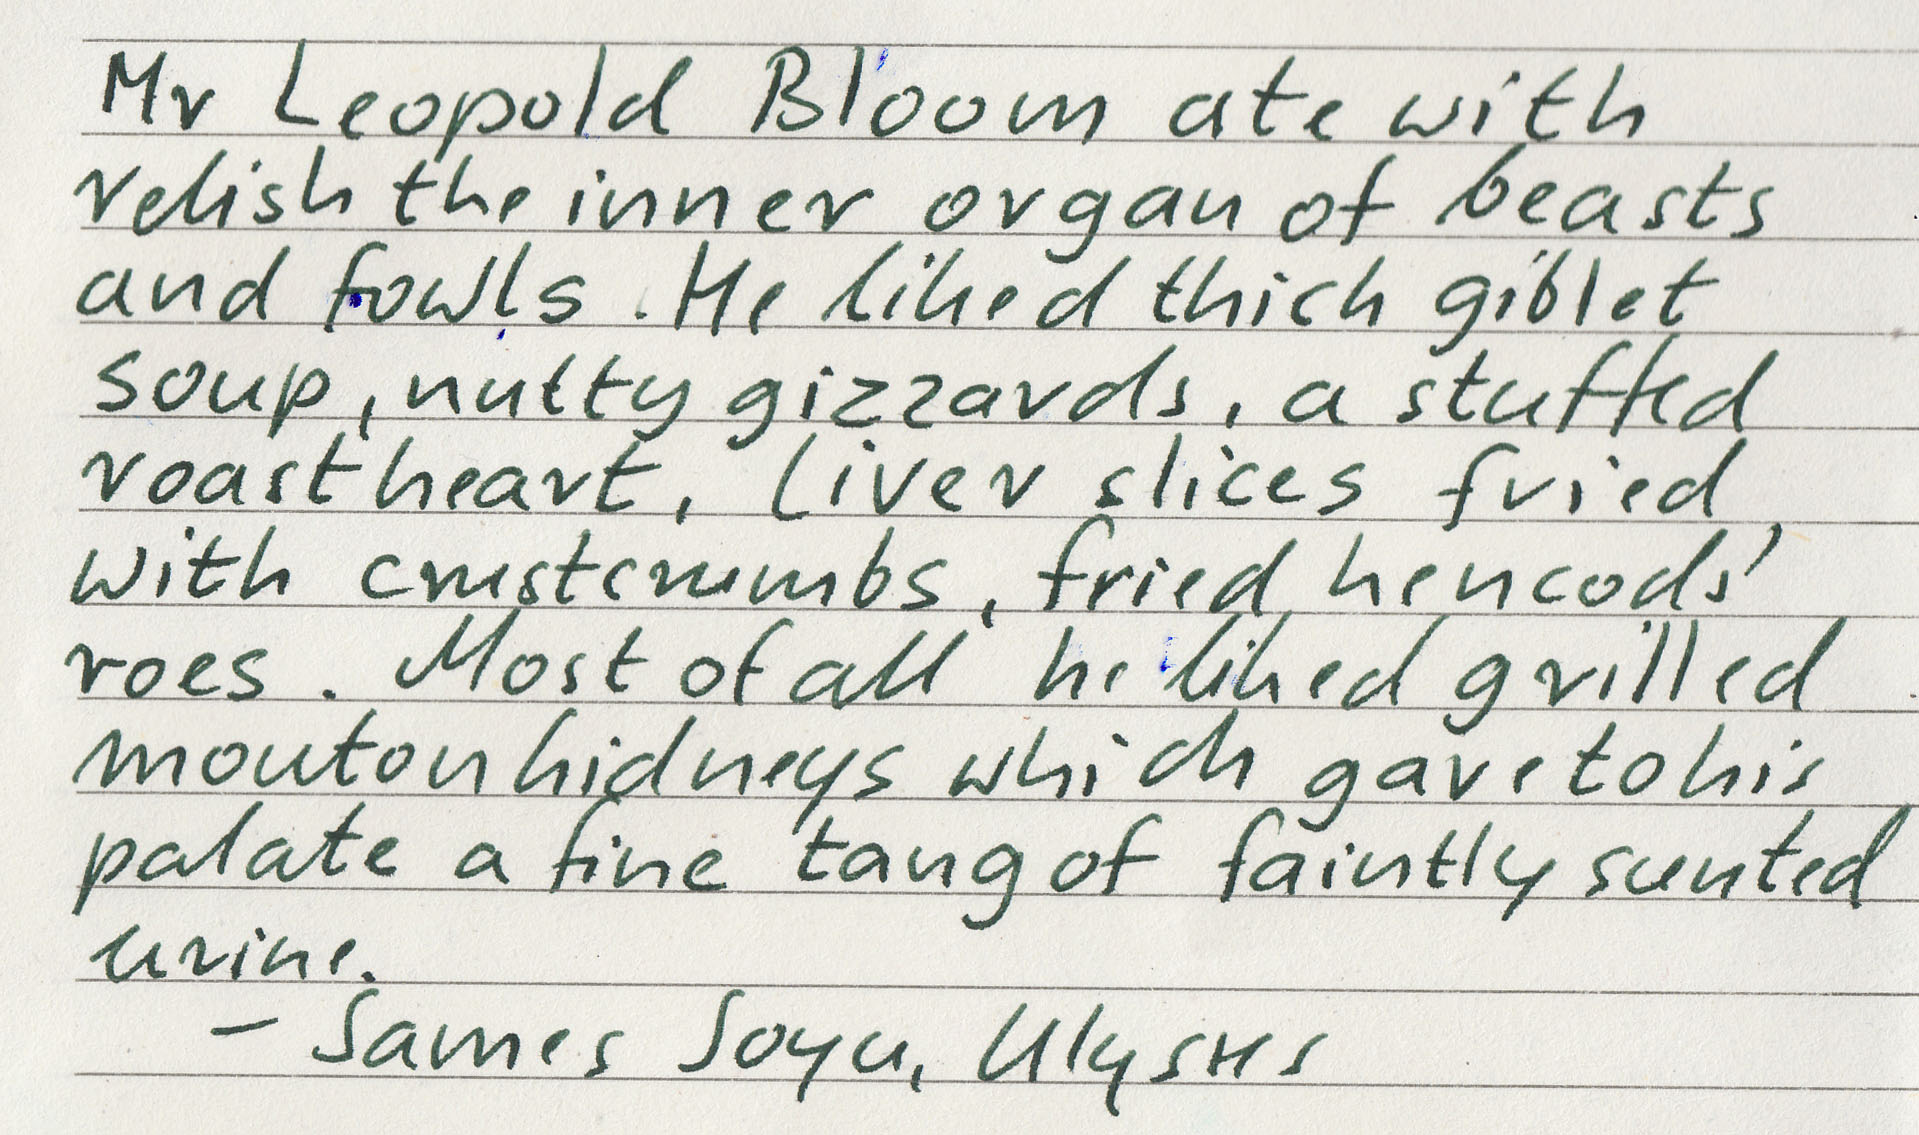 Mr Leopold Bloom ate with
relish the inner organ of beasts
and fowls. He liked thick giblet
soup, nutty gizzards, a stuffed
roast heart, liver slices fried
with crustcrumbs, fried hencods'
roes. Most of all he liked grilled
mouton kidneys which gave to his
palate a fine tang of faintly scented
urine.
– James Joyce, Ulysses